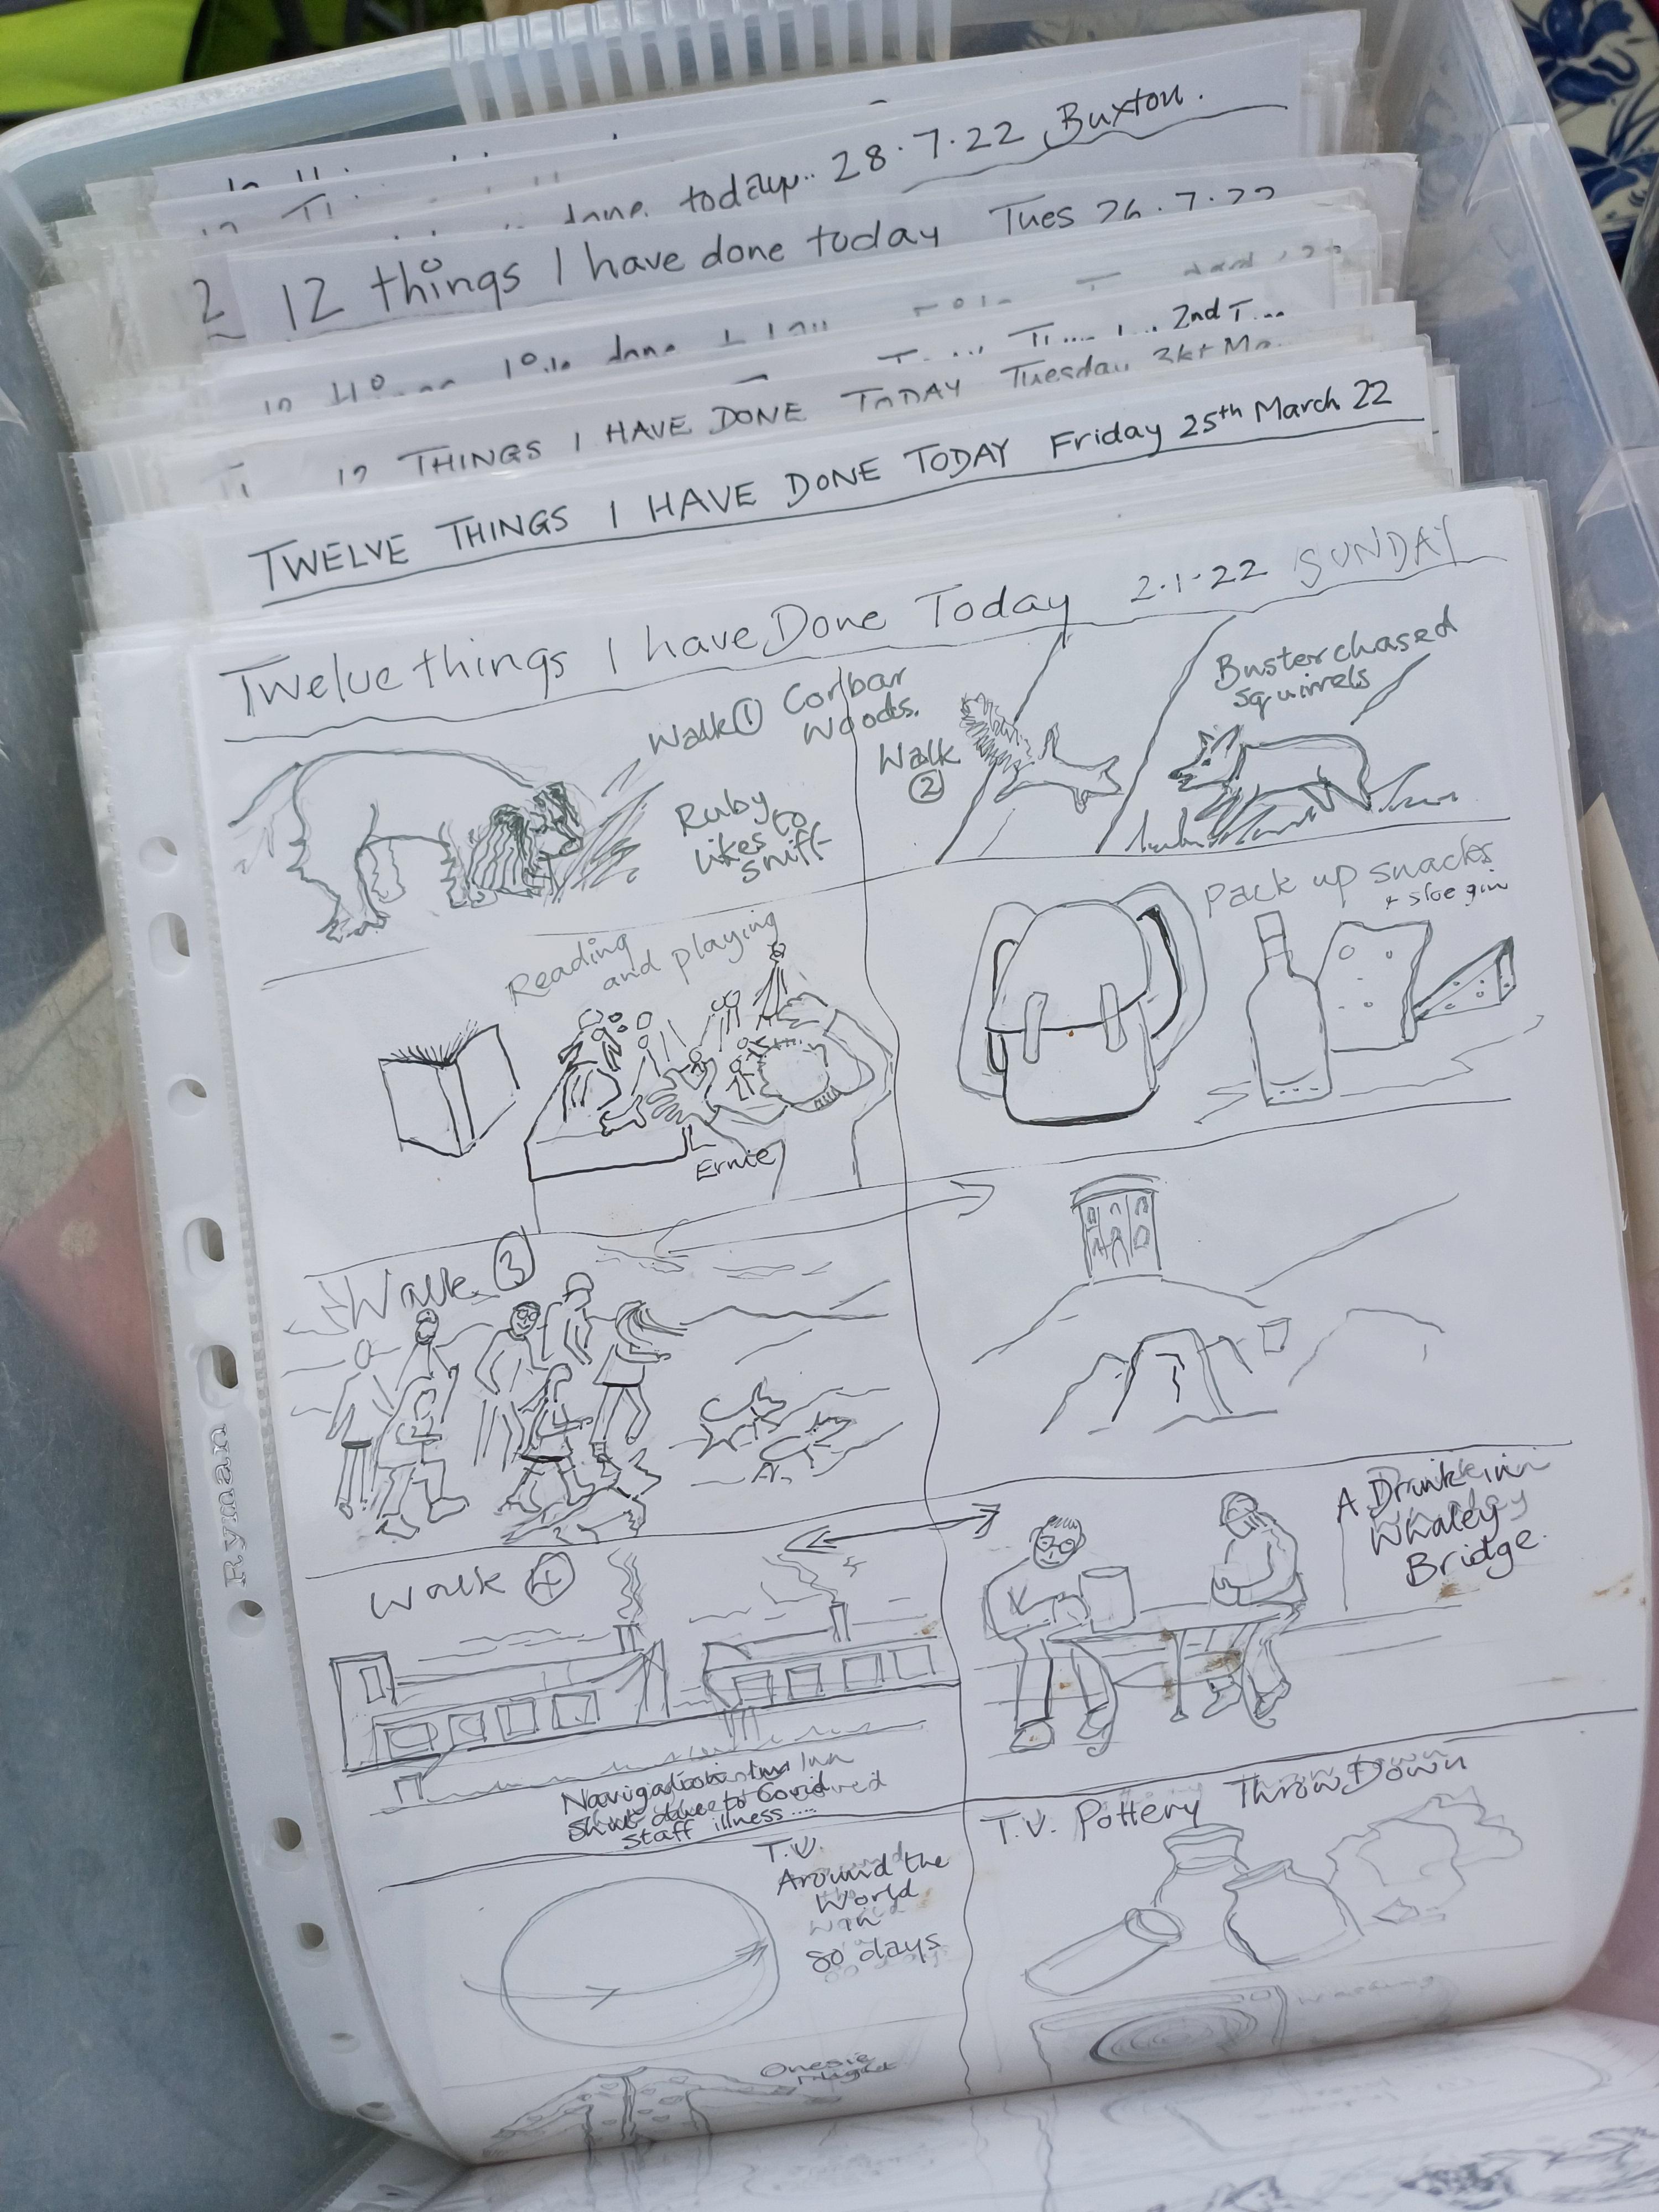 today.. 28.7.22 Buxton.
12 things I have done today Tues 26.7.22
2nd
12 THINGS I HAVE DONE TODAY Tuesday
TWELVE THINGS I HAVE DONE TODAY Friday 25th March 22
Twelve things I have Done Today 2.1.22 SUNDAY
Walk ① Corbar
Woods.
Ruby
likes to
sniff
Walk
②
Buster chased
squirrels
Reading
and playing
Ernie
Pack up snacks
+ sloe gin
Walk ③
Walk ④
Navigation Inn
Shut due to Covid
Staff illness....
A Drink in
Whaley
Bridge.
T.V.
Around the
World
in
80 days
T.V. Pottery Throw Down
Onesie
Night
Ryman